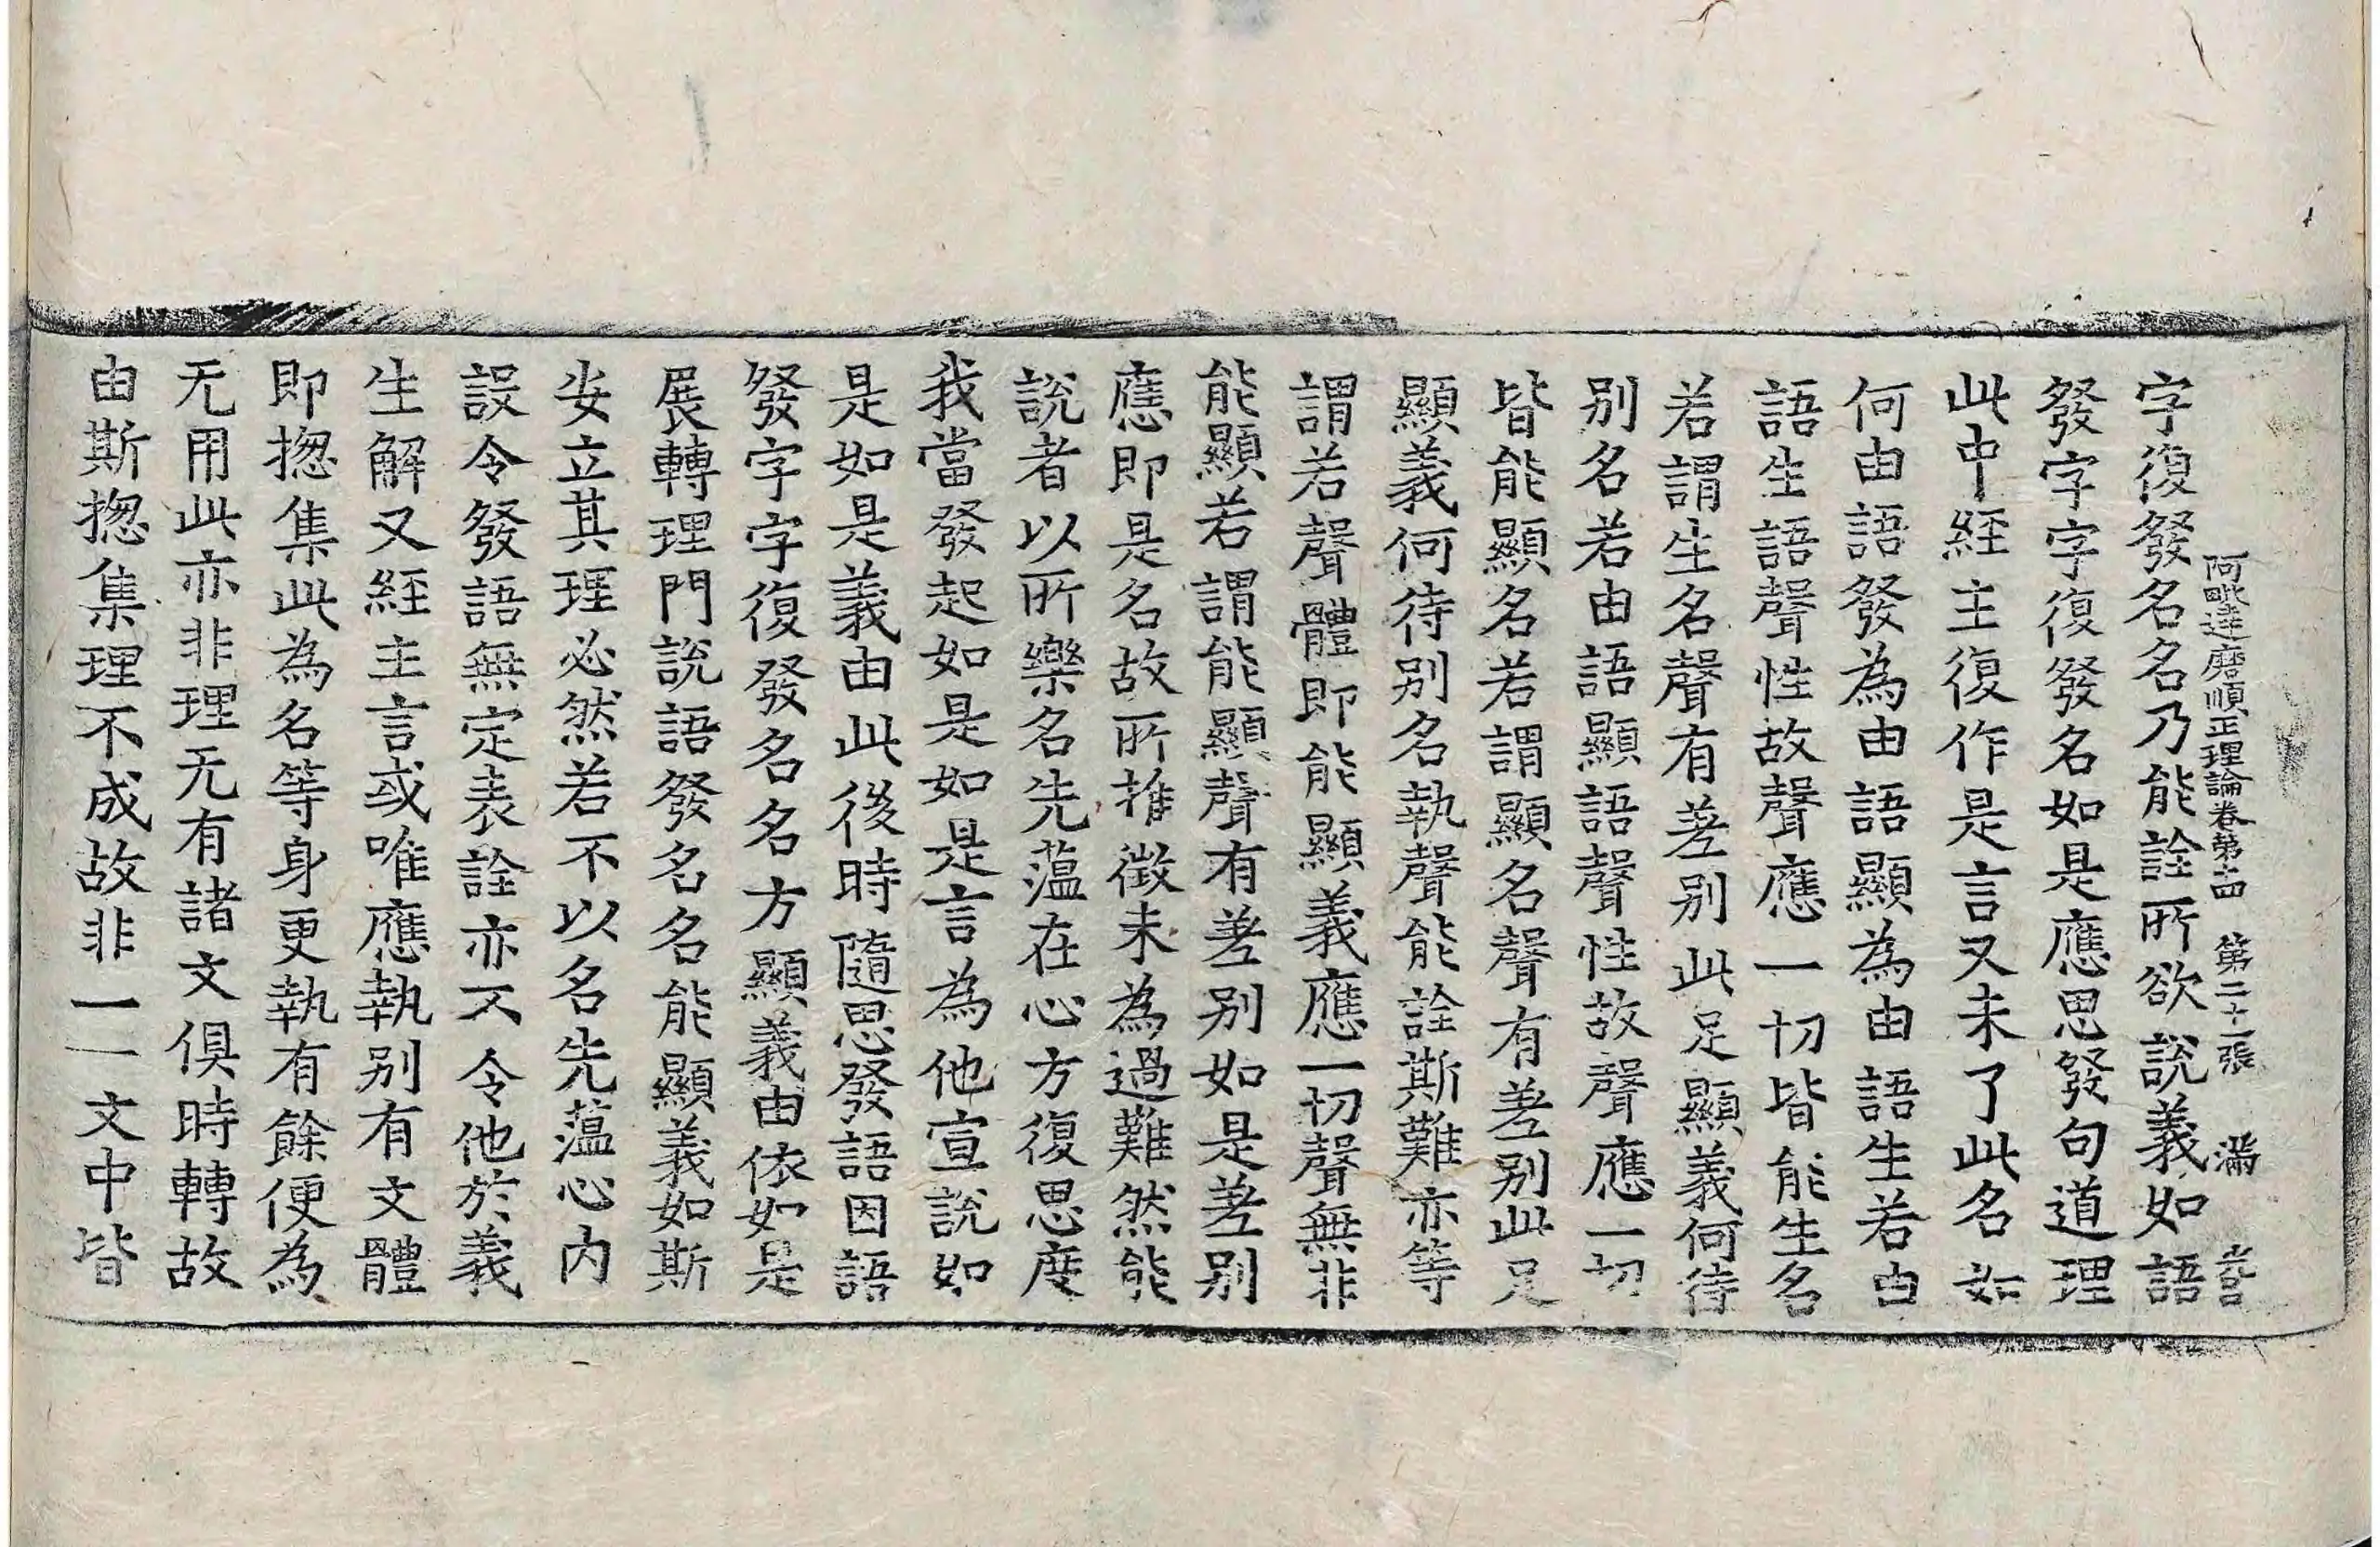 阿毗達磨順正理論卷第十四 第二十一張 滿
字復發名名乃能詮所欲說義如語
發字字復發名如是應思發句道理
此中經主復作是言又未了此名如
何由語發為由語顯為由語生若由
語生語聲性故聲應一切皆能生名
若謂生名聲有差別此足顯義何待
別名若由語顯語聲性故聲應一切
皆能顯名若謂顯名聲有差別此足
顯義何待別名執聲能詮斯難亦等
謂若聲體即能顯義應一切聲無非
能顯若謂能顯聲有差別如是差別
應即是名故所推徵未為過難然能
說者以所樂名先薀在心方復思度
我當發起如是如是言為他宣說如
是如是義由此後時隨思發語因語
發字字復發名名方顯義由依如是
展轉理門說語發名名能顯義如斯
安立其理必然若不以名先薀心內
設令發語無定表詮亦不令他於義
生解又經主言或唯應執別有文體
即揔集此為名等身更執有餘便為
无用此亦非理无有諸文俱時轉故
由斯揔集理不成故非一一文中皆